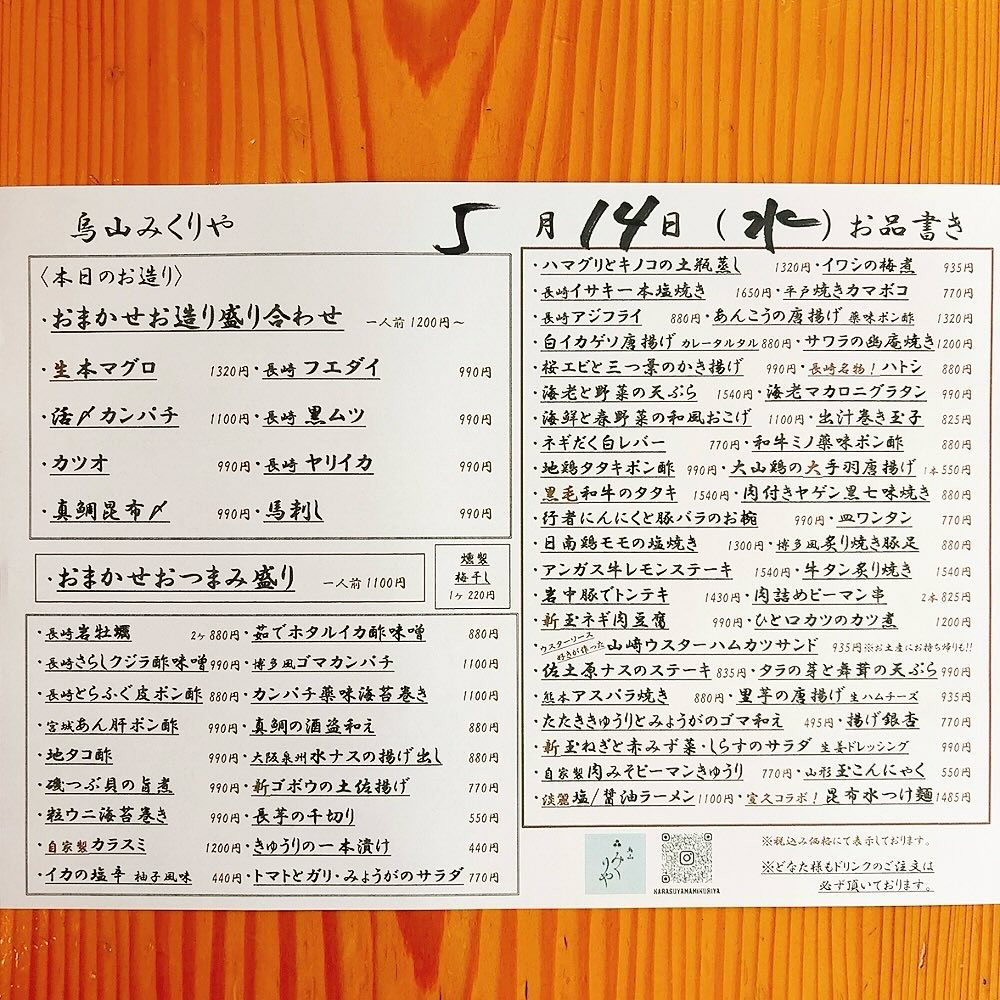 烏山みくりや 5月14日(水)お品書き
〈本日のお造り〉
・おまかせお造り盛り合わせ 一人前1200円〜
・生本マグロ 1320円・長崎フエダイ 990円
・活〆カンパチ 1100円・長崎黒ムツ 990円
・カツオ 990円・長崎ヤリイカ 990円
・真鯛昆布〆 990円・馬刺し 990円
・おまかせおつまみ盛り 一人前1100円
燻製
梅干し
1ヶ220円
・長崎岩牡蠣 2ヶ880円・茹でホタルイカ酢味噌 880円
・長崎さらしクジラ酢味噌990円・博多風ゴマカンパチ 1100円
・長崎とらふぐ皮ポン酢 880円・カンパチ薬味海苔巻き 1100円
・宮城あん肝ポン酢 990円・真鯛の酒盗和え 880円
・地タコ酢 990円・大阪泉州水ナスの揚げ出し 880円
・磯つぶ貝の旨煮 990円・新ゴボウの土佐揚げ 770円
・粒ウニ海苔巻き 990円・長芋の千切り 550円
・自家製カラスミ 1200円・きゅうりの一本漬け 440円
・イカの塩辛 柚子風味 440円・トマトとガリ・みょうがのサラダ 770円
・ハマグリとキノコの土瓶蒸し 1320円・イワシの梅煮 935円
・長崎イサキ一本塩焼き 1650円・平戸焼きカマボコ 770円
・長崎アジフライ 880円・あんこうの唐揚げ 薬味ポン酢 1320円
・白イカゲソ唐揚げ カレータルタル880円・サワラの幽庵焼き1200円
・桜エビと三つ葉のかき揚げ 990円・長崎名物!ハトシ 880円
・海老と野菜の天ぷら 1540円・海老マカロニグラタン 990円
・海鮮と春野菜の和風おこげ 1100円・出汁巻き玉子 825円
・ネギだく白レバー 770円・和牛ミノ薬味ポン酢 880円
・地鶏タタキポン酢 990円・大山鶏の大手羽唐揚げ 1本550円
・黒毛和牛のタタキ 1540円・肉付きヤゲン黒七味焼き 880円
・行者にんにくと豚バラのお椀 990円・皿ワンタン 770円
・日南鶏モモの塩焼き 1300円・博多風炙り焼き豚足 880円
・アンガス牛レモンステーキ 1540円・牛タン炙り焼き 1540円
・岩中豚でトンテキ 1430円・肉詰めピーマン串 2本825円
・新玉ネギ肉豆腐 990円・ひと口カツのカツ煮 1200円
・ウスターソース好きが作った山﨑ウスターハムカツサンド 935円※お土産にお持ち帰りも!!
・佐土原ナスのステーキ 835円・タラの芽と舞茸の天ぷら 990円
・熊本アスパラ焼き 880円・里芋の唐揚げ 生ハムチーズ 935円
・たたききゅうりとみょうがのゴマ和え 495円・揚げ銀杏 770円
・新玉ねぎと赤みず菜・しらすのサラダ 生姜ドレッシング 990円
・自家製肉みそピーマンきゅうり 770円・山形玉こんにゃく 550円
・淡麗塩/醤油ラーメン1100円・宣久コラボ!昆布水つけ麺1485円
烏山
みくりや
KARASUYAMAMIKURIYA
※税込み価格にて表示しております。
※どなた様もドリンクのご注文は
必ず頂いております。